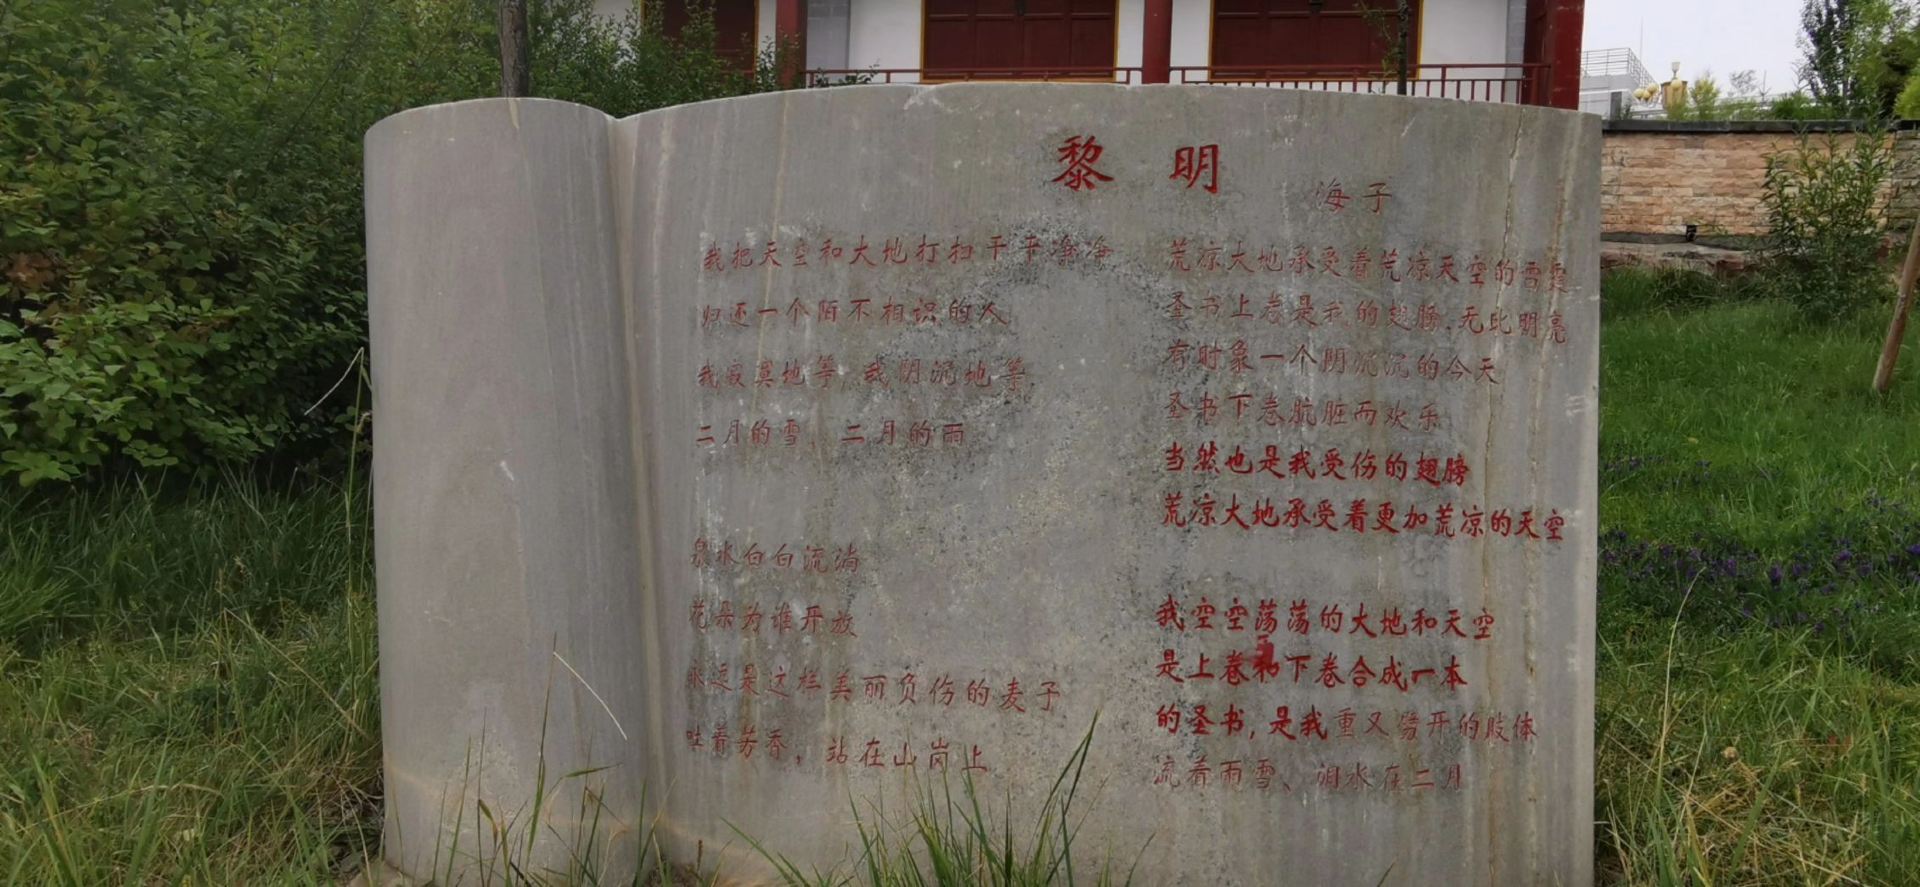 黎明
海子
我把天空和大地打扫干干净净
归还一个陌不相识的人
我寂寞地等,我阴沉地等
二月的雪、二月的雨
泉水白白流淌
花朵为谁开放
永远是这样美丽负伤的麦子
吐着芳香,站在山岗上
荒凉大地承受着荒凉天空的雷霆
圣书上卷是我的翅膀、无比明亮
有时象一个阴沉沉的今天
圣书下卷肮脏而欢乐
当然也是我受伤的翅膀
荒凉大地承受着更加荒凉的天空
我空空荡荡的大地和天空
是上卷和下卷合成一本
的圣书,是我重又劈开的肢体
流着雨雪、泪水在二月